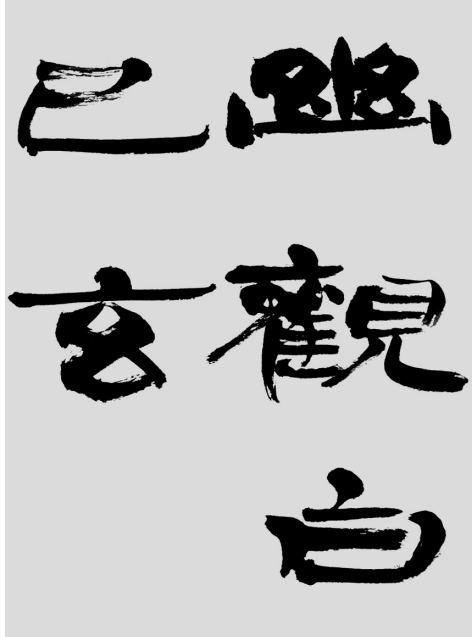 幽觀白
已玄